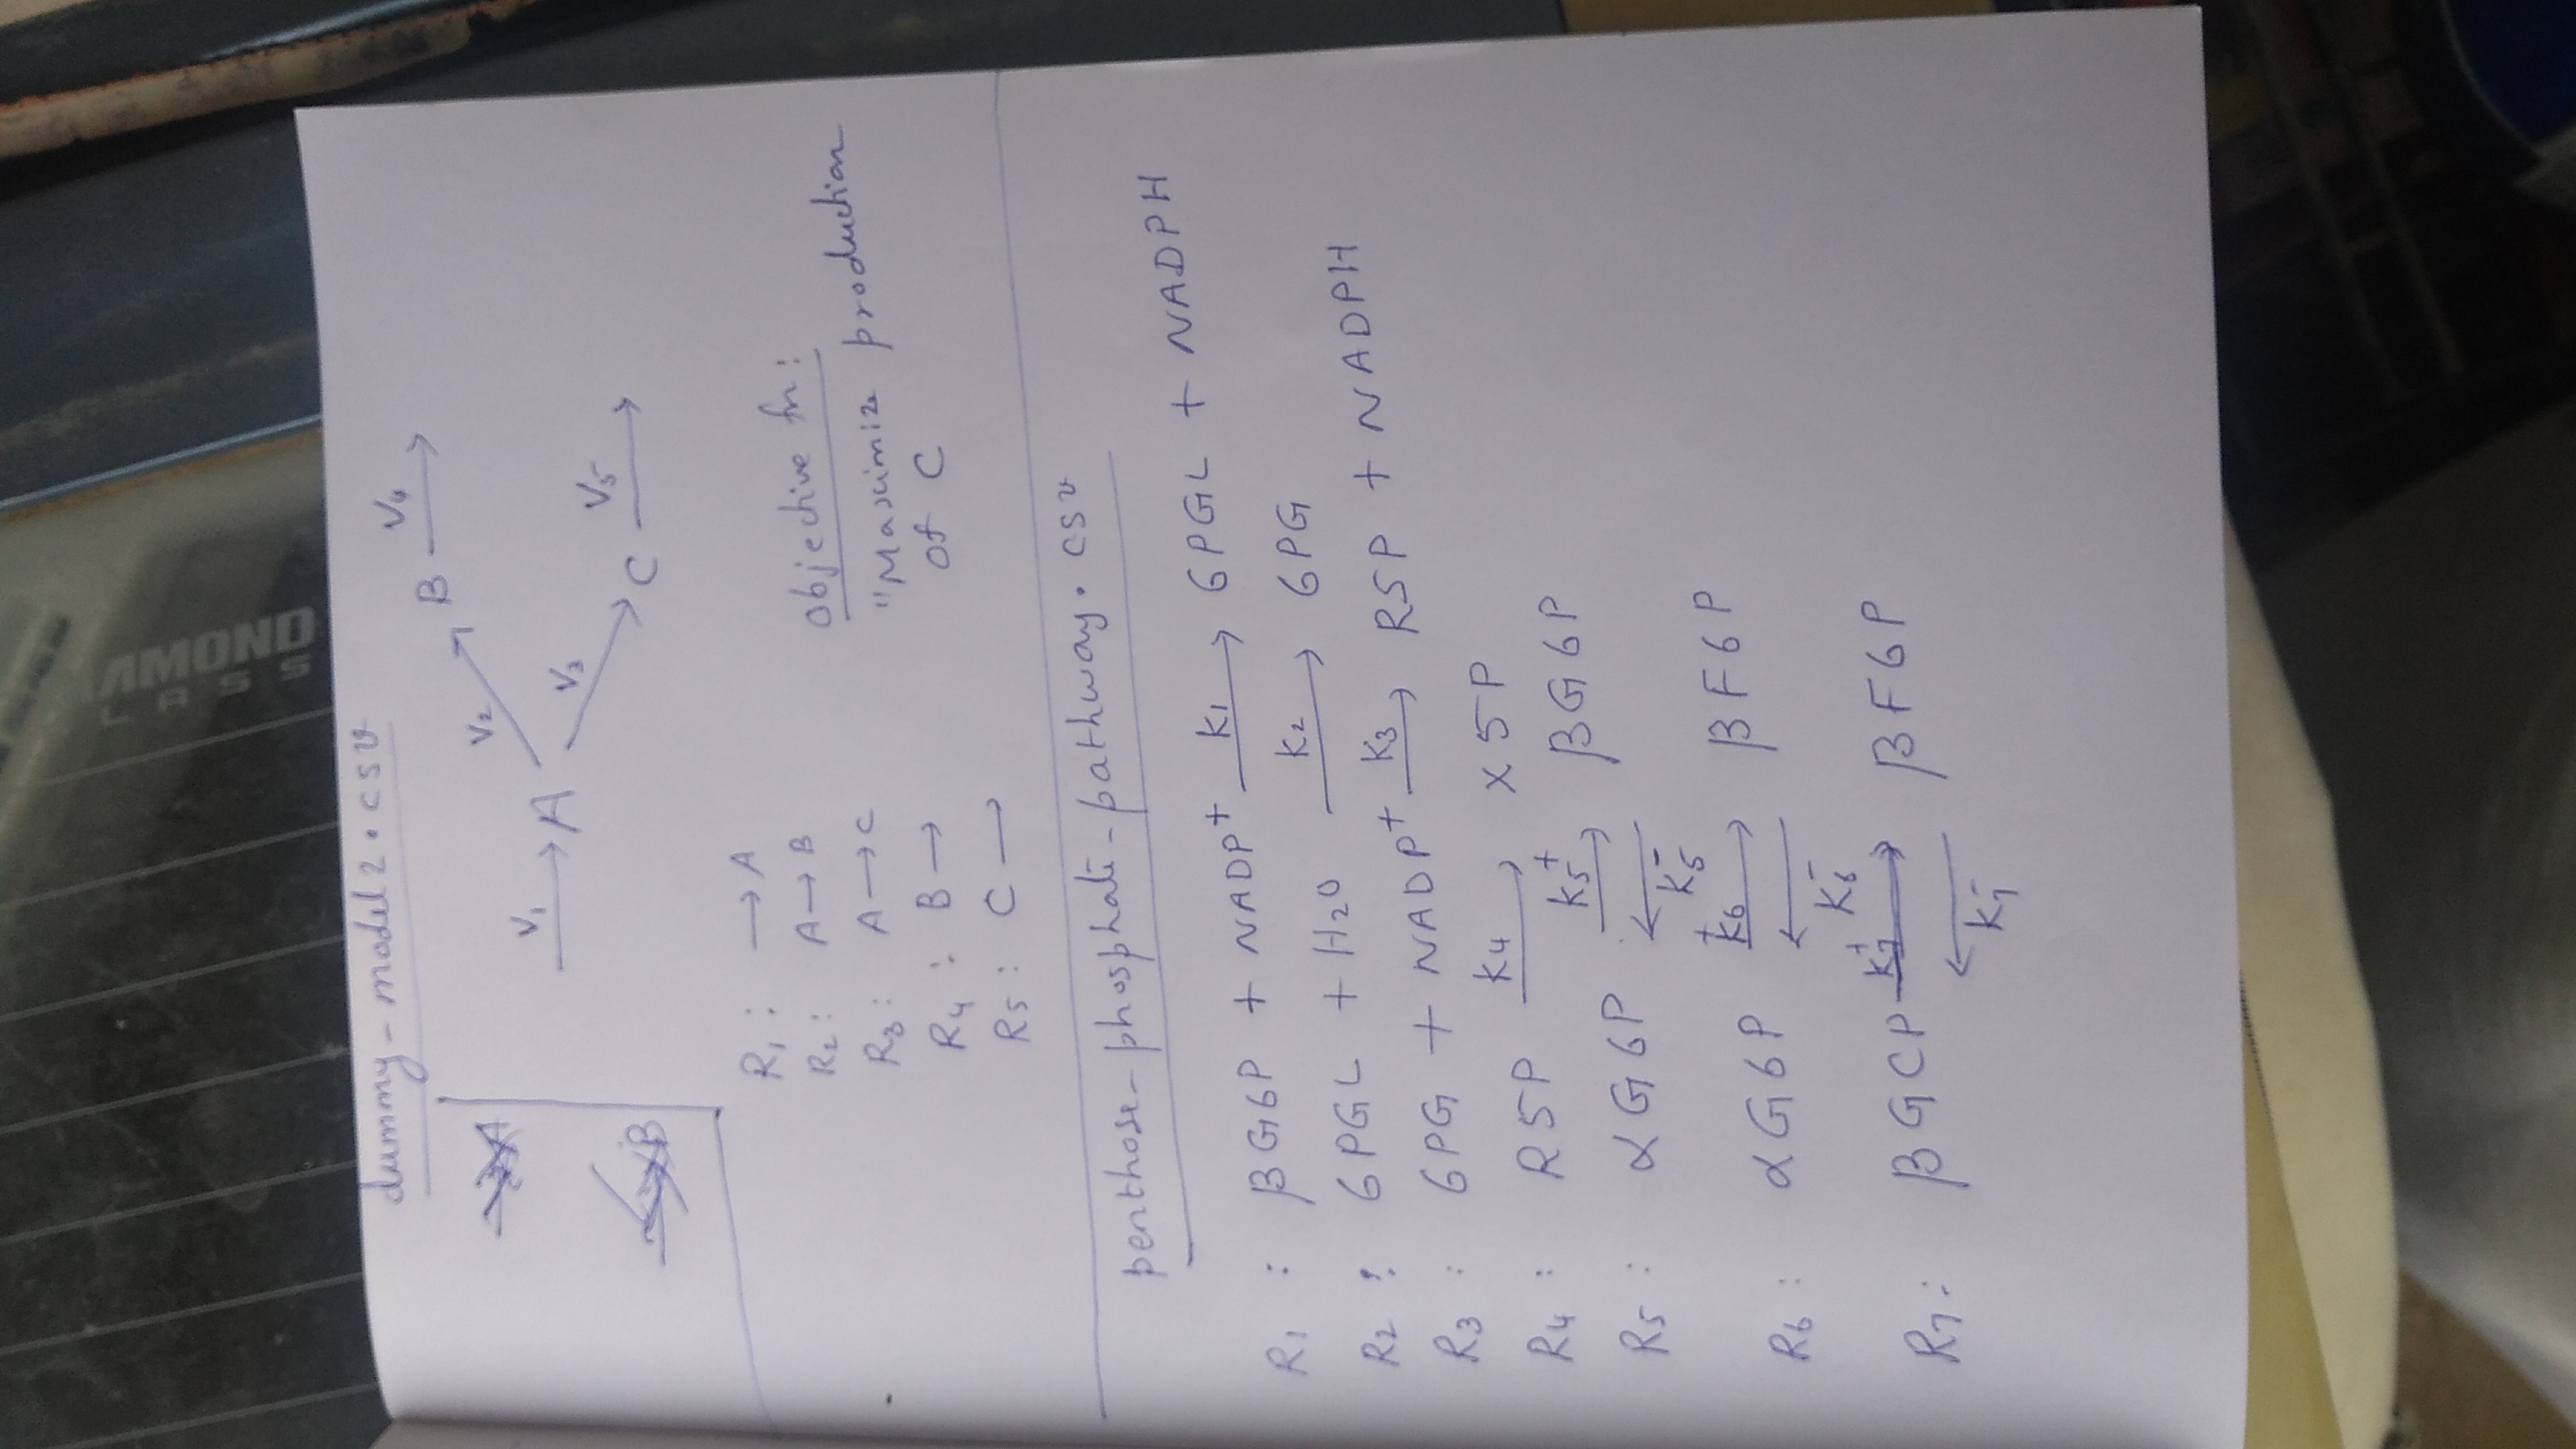 dummy-model2.csv
V₁ → A
V₂ B V₄ →
V₃ C V₅ →
R₁ : → A
R₂ : A → B
R₃ : A → C
R₄ : B →
R₅ : C →
objective fn:
"Maximize production
of C
penthose-phosphate-pathway.csv
R₁ : βG6P + NADP⁺ —k₁→ 6PGL + NADPH
R₂ : 6PGL + H₂O —k₂→ 6PG
R₃ : 6PG + NADP⁺ —k₃→ R5P + NADPH
R₄ : R5P —k₄→ X5P
R₅ : αG6P k₅⁺ → ← k₅⁻ βG6P
R₆ : αG6P k₆⁺ → ← k₆⁻ βF6P
R₇ : βGCP k₇⁺ → ← k₇⁻ βF6P
AMOND
LASS